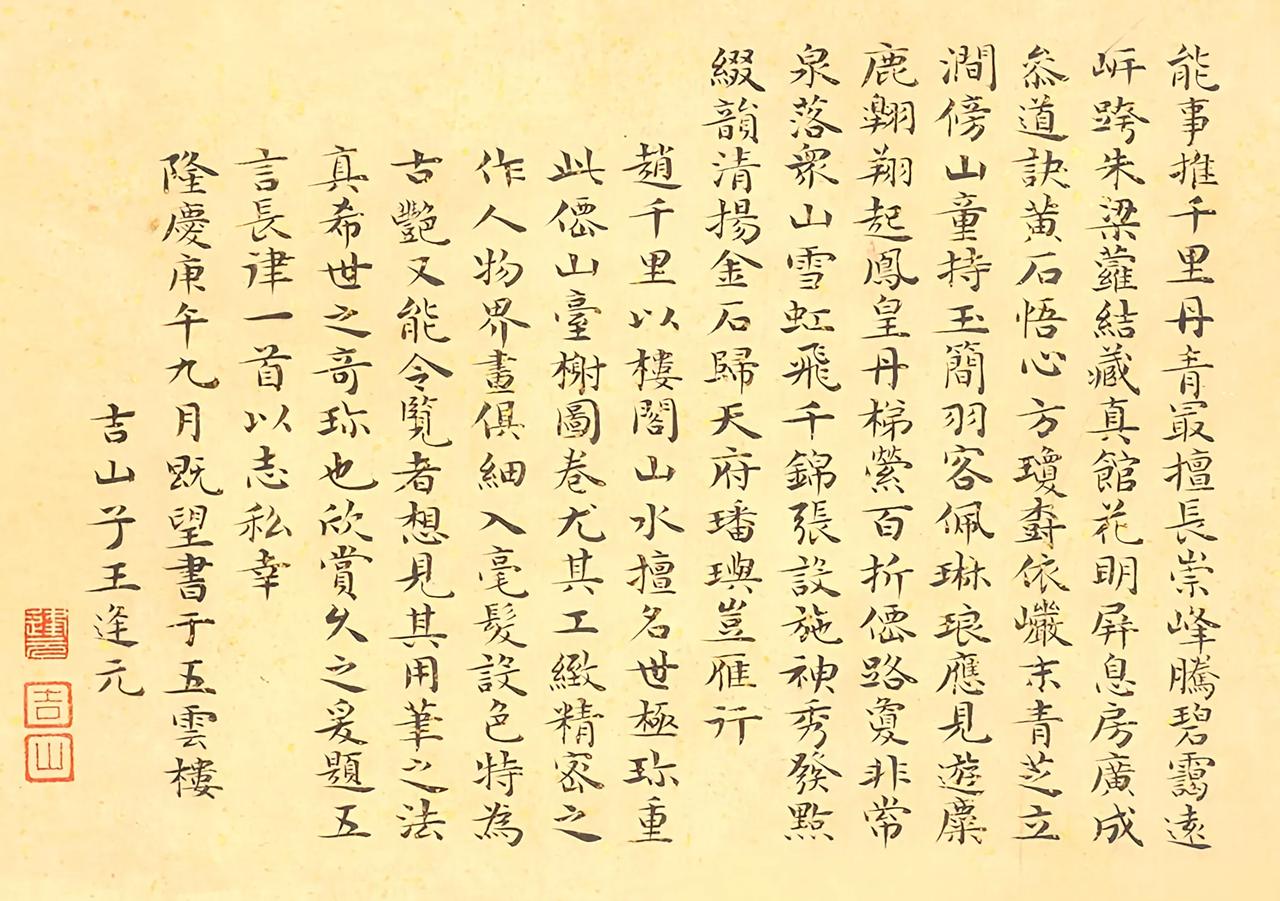 能事推千里丹青最擅長崇峰騰碧靄遠
岍跨朱梁蘿結藏真館花明屏息房廣成
叅道訣黃石悟心方瓊麝依巗末青芝立
澗傍山童持玉簡羽客佩琳琅應見遊麋
鹿翱翔起鳳皇丹梯縈百折僊路敻非常
泉落衆山雪虹飛千錦張設施神秀發點
綴韻清揚金石歸天府璠璵豈雁行
趙千里以樓閣山水擅名世極珎重
此僊山臺榭圖卷尤其工緻精密之
作人物界畫俱細入毫髮設色特為
古艷又能令覽者想見其用筆之法
真希世之奇珎也欣賞久之爰題五
言長律一首以志私幸
隆慶庚午九月既望書于五雲樓
吉山子王逢元
逢元
吉山